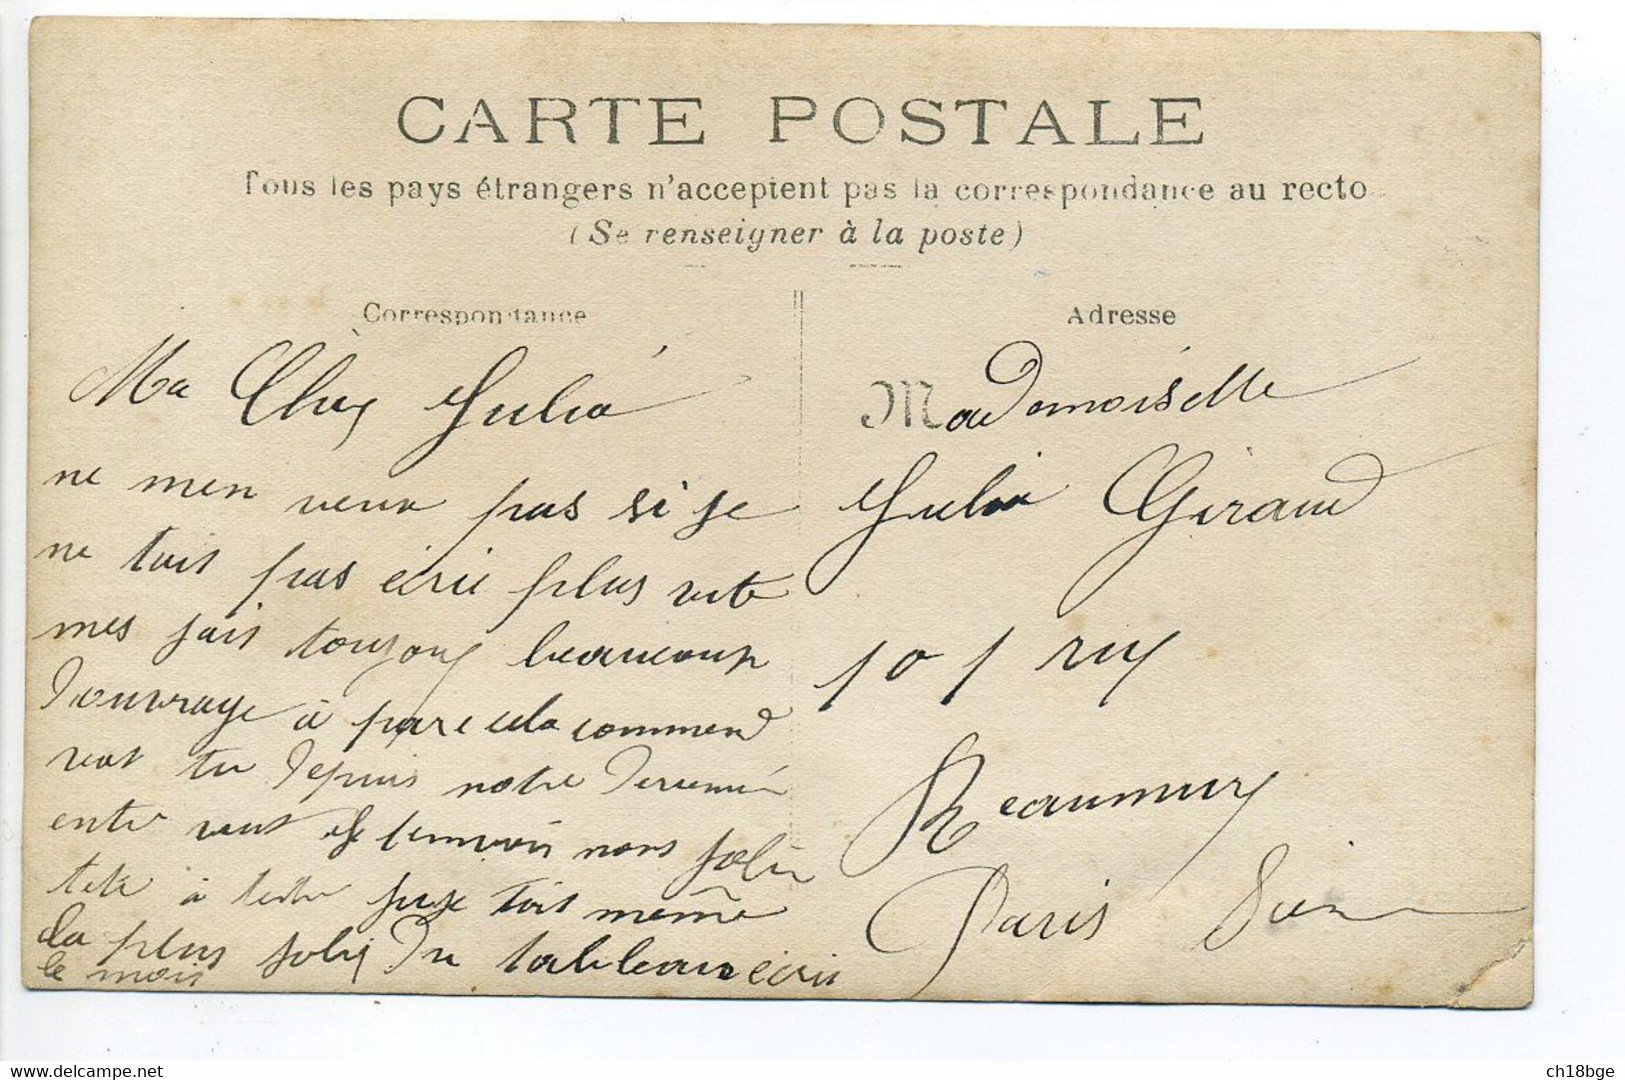 CARTE POSTALE
Tous les pays étrangers n'acceptent pas la correspondance au recto
(Se renseigner à la poste)
Correspondance
Ma Cher Julia
ne men veux pas si je
ne tait pas écrie plus vite
mes jait toujours beaucoup
d'ouvrage à pare cela commend
vat tu depuis notre
veut je nous joli
tete à tete juge toit même
la plus joli du tableau écrie
le mois
Adresse
Mademoiselle
Julia Giraud
101 rue
Reaumur
Paris Seine
ch18bge